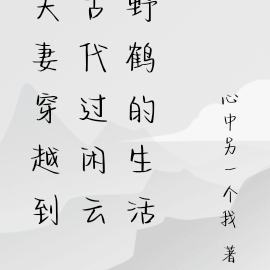 夫妻穿越到
古代过闲云
野鹤的生活
心中另一个我 著